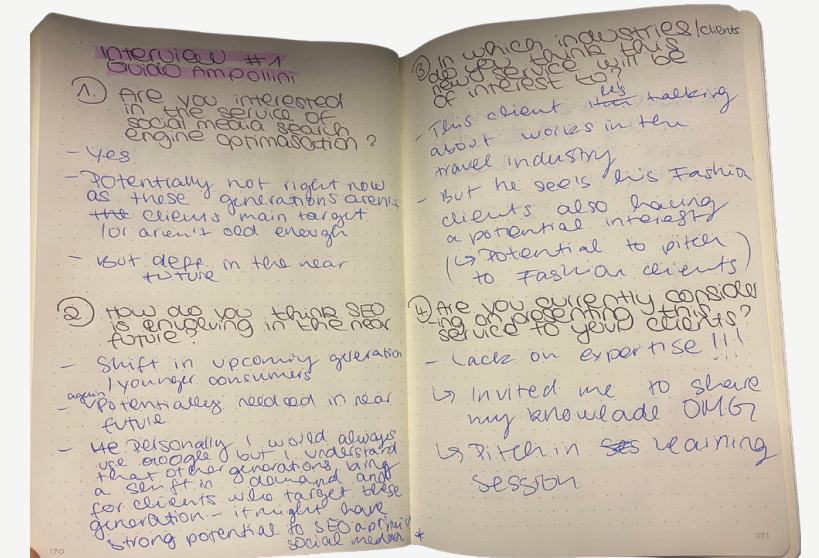 Interview #1
Guido Ampollini
1. Are you interested
in the service of
social media search
engine optimasation?
- Yes
- Potentially not right now
as these generations aren't
the clients main target
/or aren't old enough
- But deff in the near
future
2 How do you think SEO
is envolving in the near
future?
- Shift in upcoming generation
/younger consumers
- again Potentially needed in near
future
- He Personally I would always
use Google but I understand
that other generations bring
a shift in demand and
for clients who target these
generation - it might have
strong potential to SEO optimise
social media
170
3 In which industries/clients
do you think this
new service will be
of interest to?
- This client he's talking
about works in the
travel industry
- But he sees his Fashion
clients also having
a potential interest
(↳ Potential to pitch
to Fashion clients)
4. Are you currently consider
-ing on presenting this
service to your clients?
- Lack on expertise!!!
↳ Invited me to share
my knowlade OMG
↳ Pitch in ses learning
session
*
171